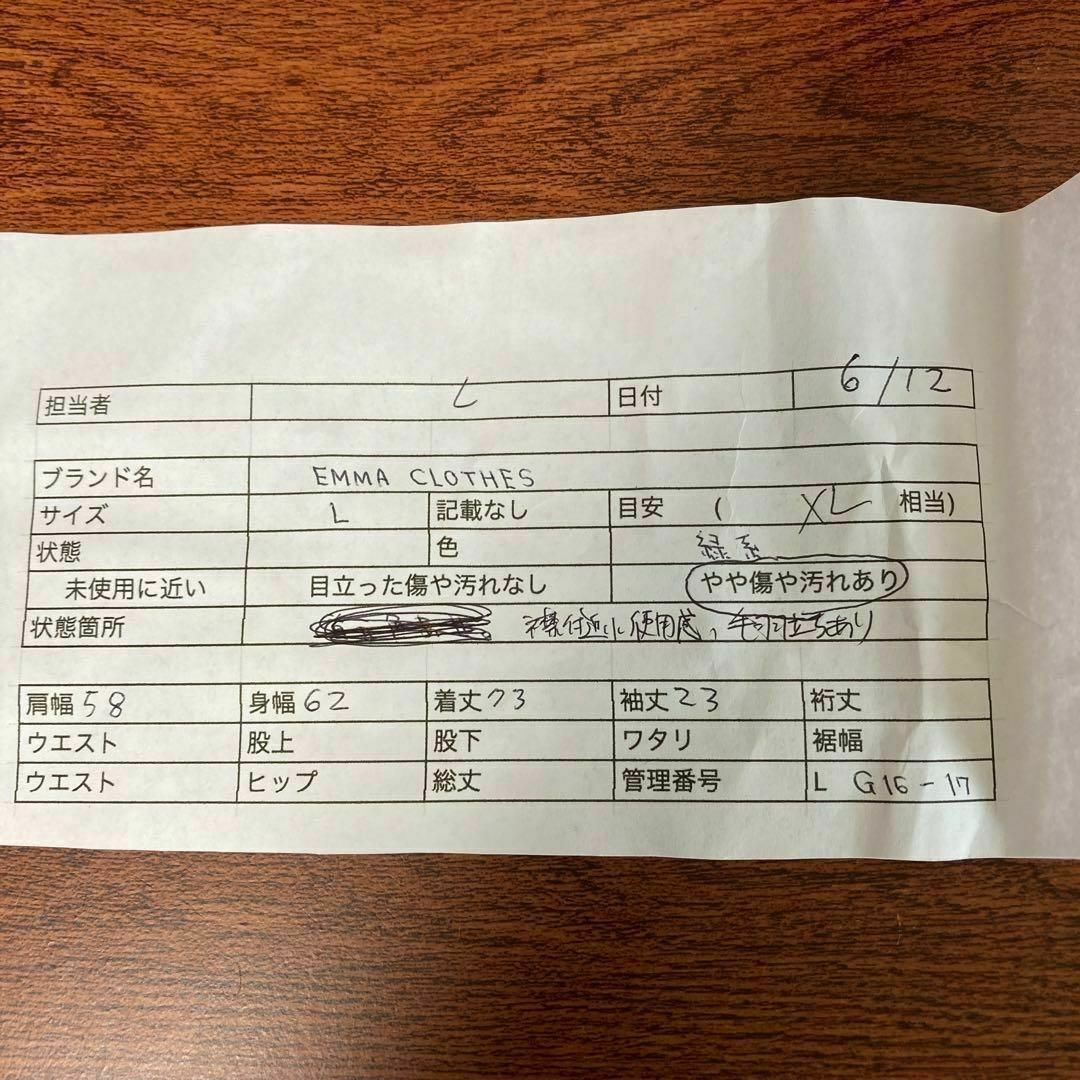 担当者 L 日付 6/12
ブランド名 EMMA CLOTHES
サイズ L 記載なし 目安 ( XL 相当)
状態 色 緑系
未使用に近い 目立った傷や汚れなし やや傷や汚れあり
状態箇所 襟付近に使用感、毛羽立ちあり
肩幅 58 身幅 62 着丈 73 袖丈 23 裄丈
ウエスト 股上 股下 ワタリ 裾幅
ウエスト ヒップ 総丈 管理番号 L G16-17